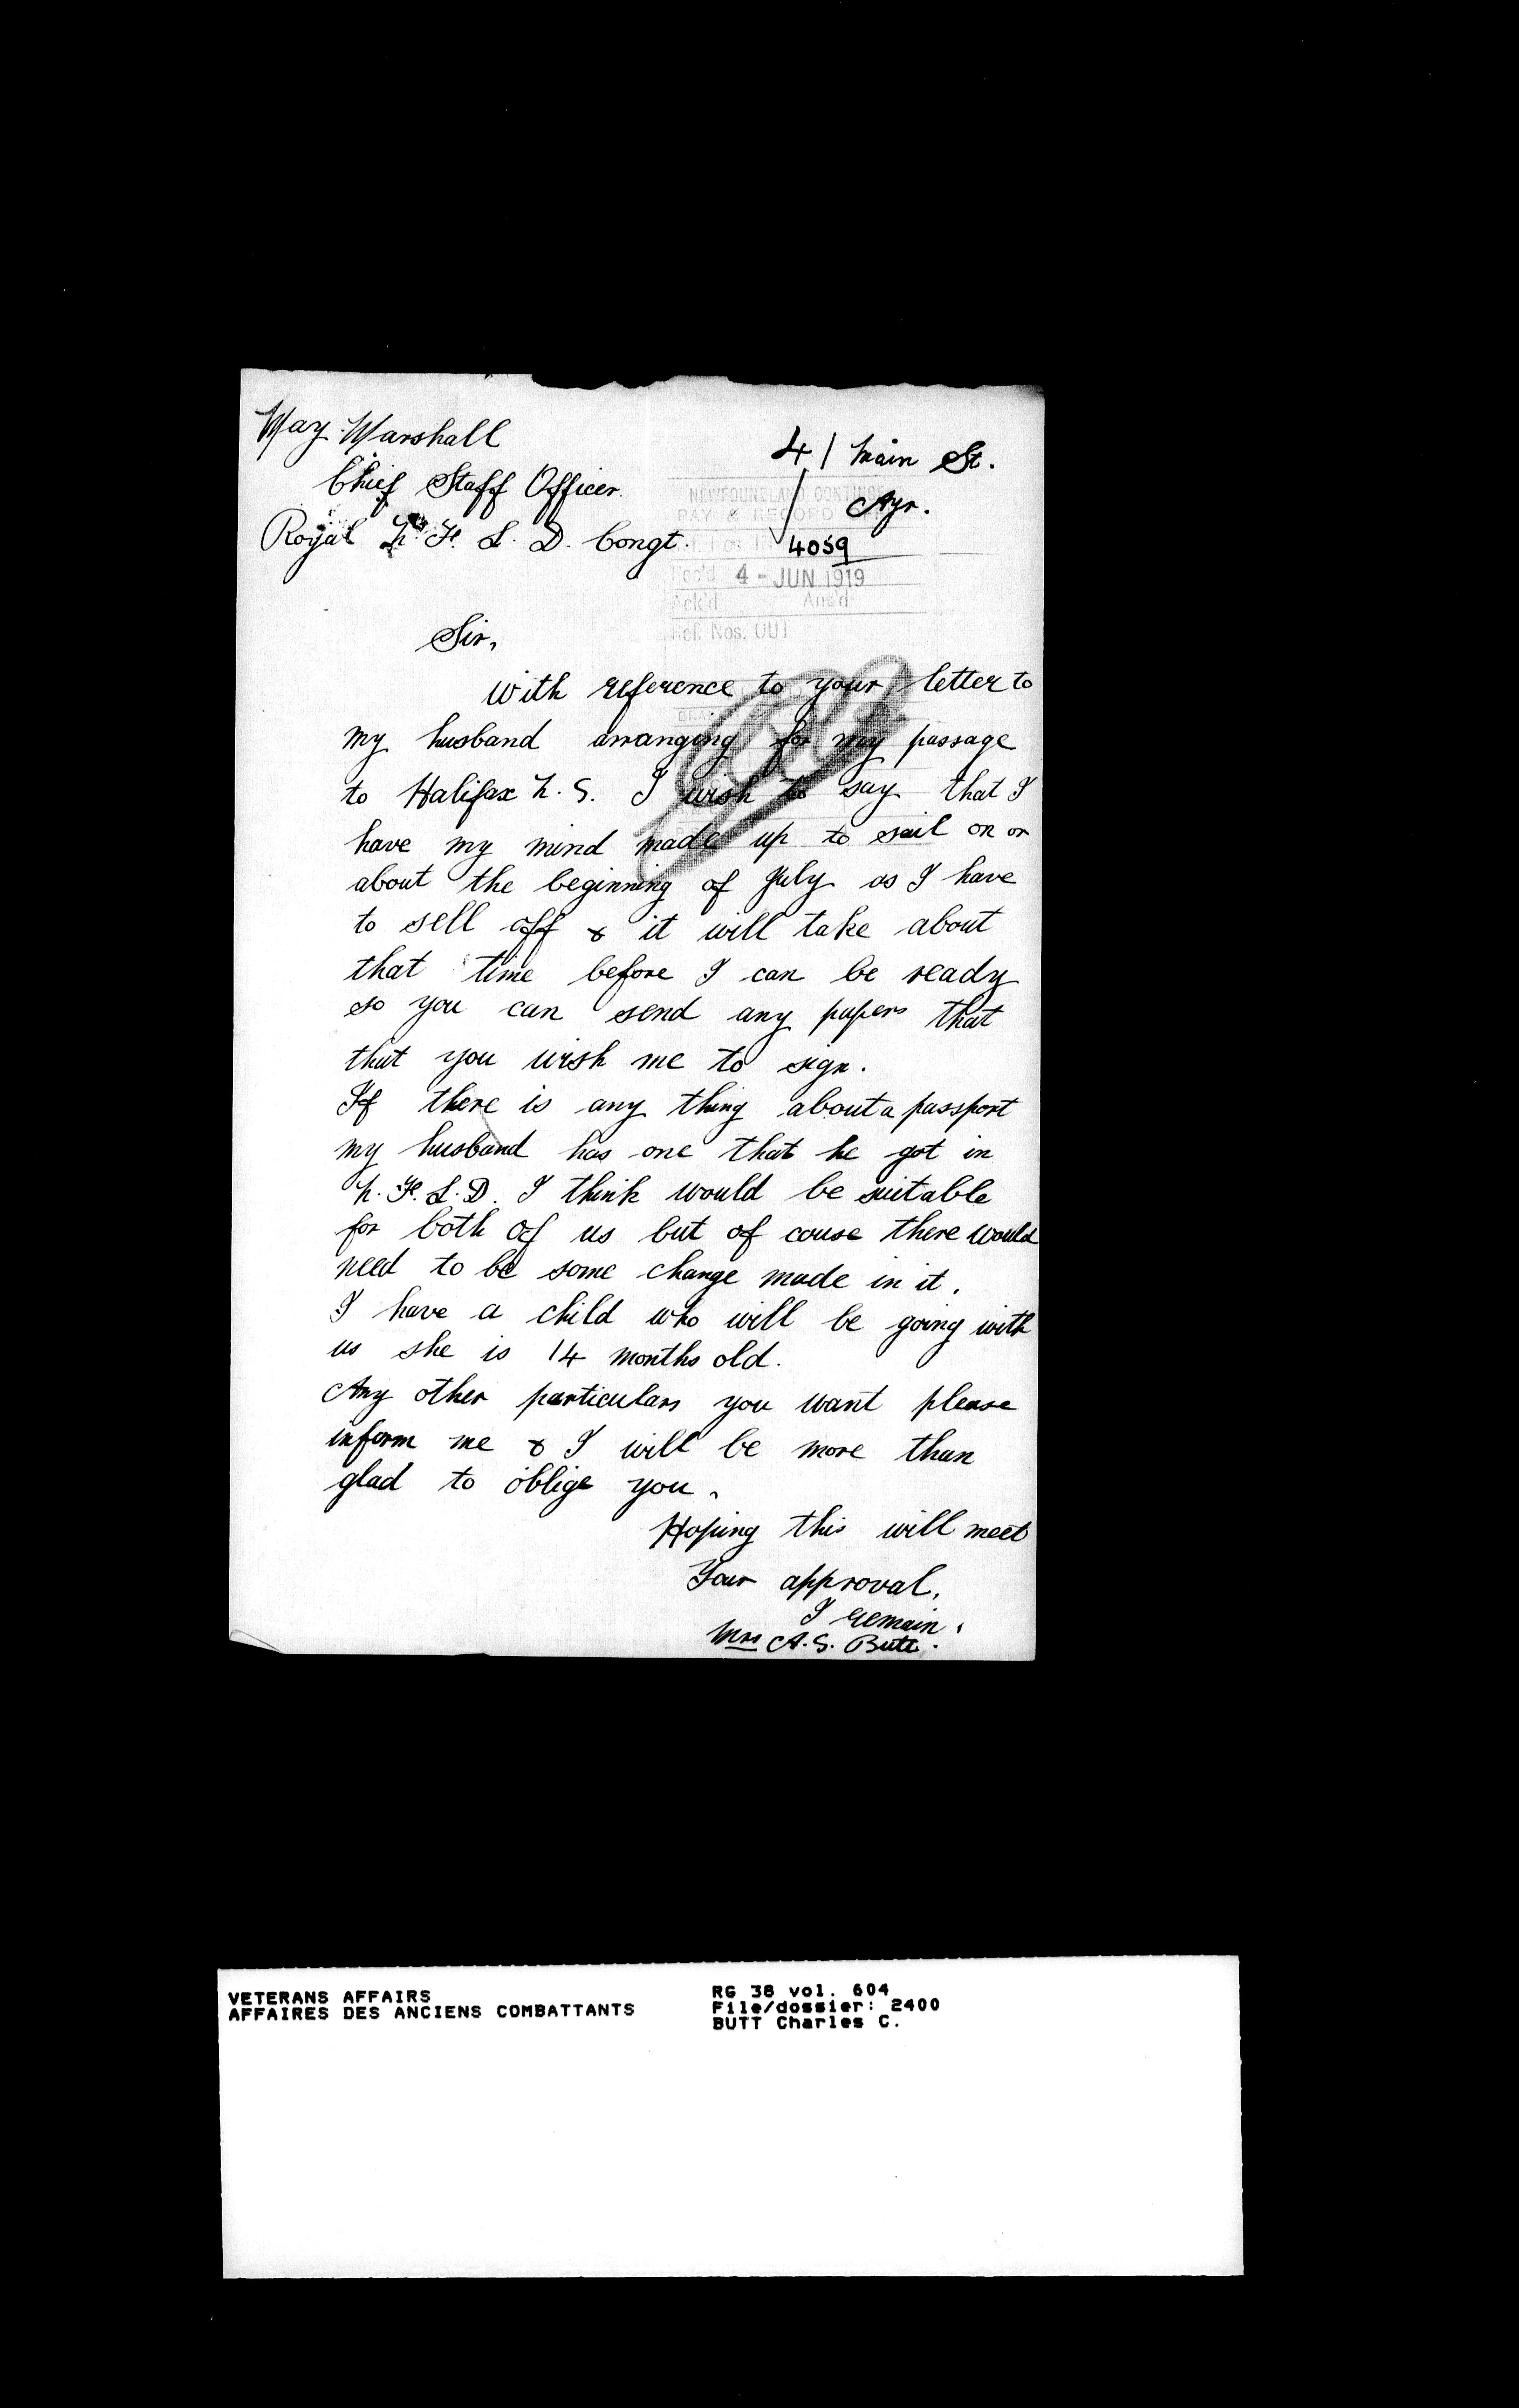 May. Marshall
Chief Staff Officer.
Royal N. F. L. D. Congt.
41 Main St.
Ayr.
NEWFOUNDLAND CONTINGENT
PAY & RECORD
4059
Rec'd 4 - JUN 1919
Ack'd Ans'd
Ref. Nos. OUT
Sir,
With reference to your letter to
my husband arranging for my passage
to Halifax N. S. I wish to say that I
have my mind made up to sail on or
about the beginning of July as I have
to sell off & it will take about
that time before I can be ready
so you can send any papers that
that you wish me to sign.
If there is any thing about a passport
my husband has one that he got in
N. F. L. D. I think would be suitable
for both of us but of couse there would
need to be some change made in it.
I have a child who will be going with
us she is 14 months old.
Any other particulars you want please
inform me & I will be more than
glad to oblige you.
Hoping this will meet
Your approval,
I remain,
Mrs A. S. Butt.
VETERANS AFFAIRS
AFFAIRES DES ANCIENS COMBATTANTS
RG 38 vol. 604
File/dossier: 2400
BUTT Charles C.